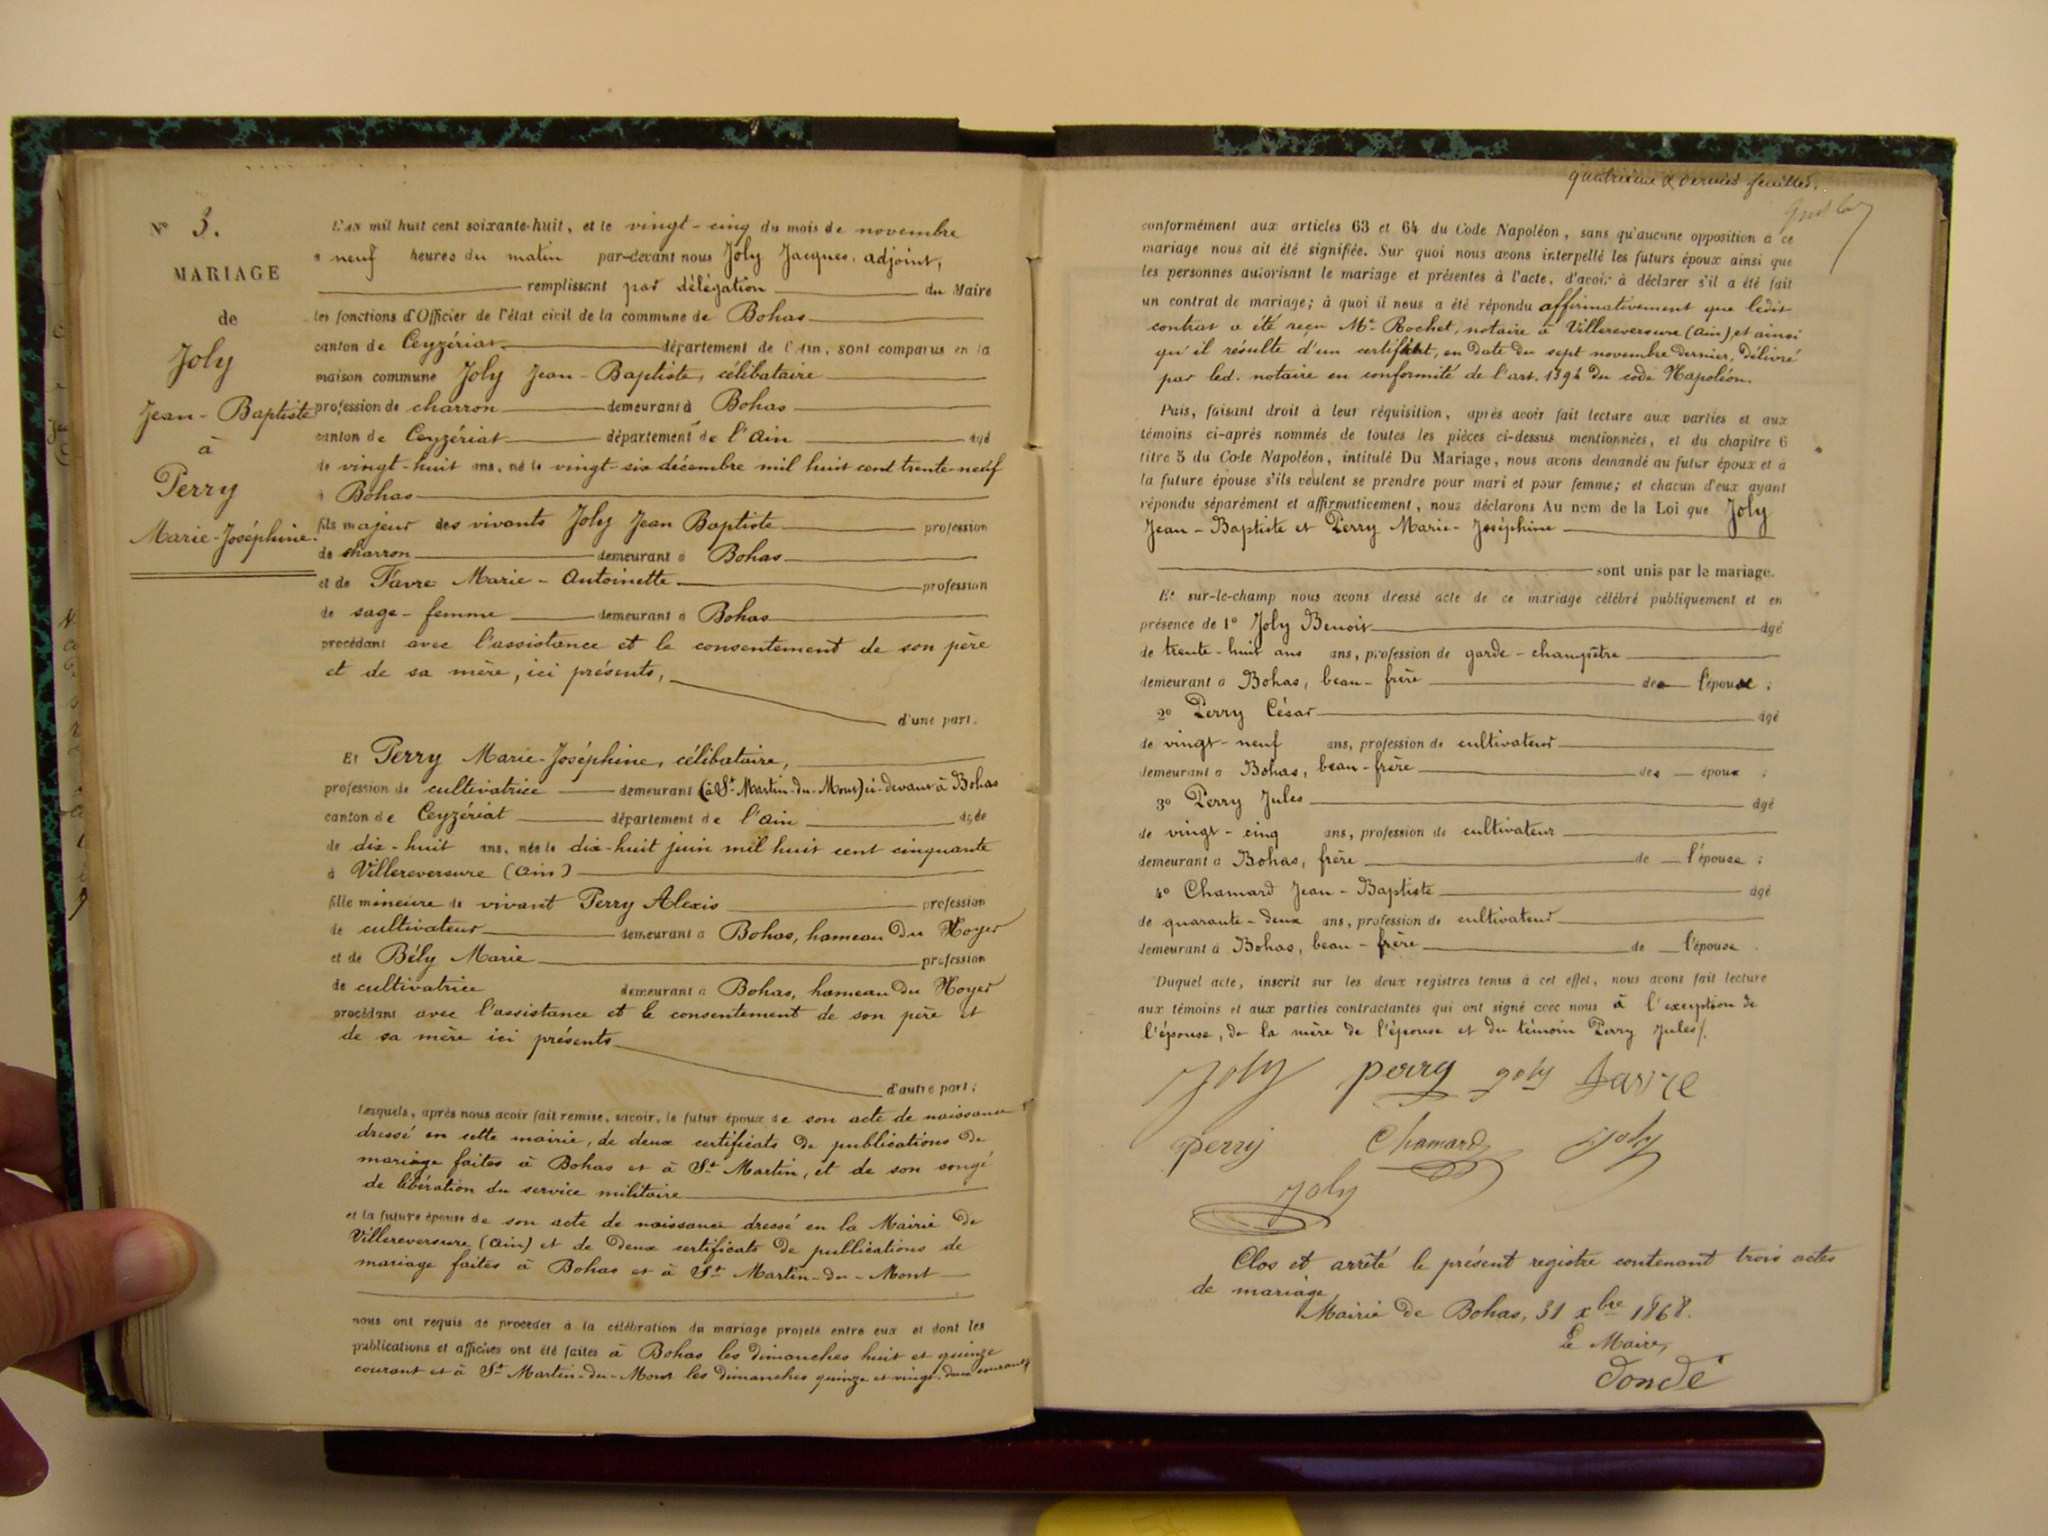 N° 3.
MARIAGE
de
Joly
Jean-Baptiste
à
Perry
Marie-Joséphine.
L'AN mil huit cent soixante-huit, et le vingt-cinq du mois de novembre
à neuf heures du matin par-devant nous Joly Jacques, adjoint,
remplissant par délégation du Maire
les fonctions d'Officier de l'état civil de la commune de Bohas
canton de Ceyzériat département de l'Ain, sont comparus en la
maison commune Joly Jean-Baptiste, célibataire
profession de charron demeurant à Bohas
canton de Ceyzériat département de l'Ain âgé
de vingt-huit ans, né le vingt-six décembre mil huit cent trente-neuf
à Bohas
fils majeur des vivants Joly Jean Baptiste profession
de charron demeurant à Bohas
et de Favre Marie-Antoinette profession
de sage-femme demeurant à Bohas
procédant avec l'assistance et le consentement de son père
et de sa mère, ici présents,
d'une part.
Et Perry Marie-Joséphine, célibataire,
profession de cultivatrice demeurant (à St-Martin-du-Mont) ci-devant à Bohas
canton de Ceyzériat département de l'Ain âgée
de dix-huit ans, née le dix-huit juin mil huit cent cinquante
à Villereversure (Ain)
fille mineure de vivant Perry Alexis profession
de cultivateur demeurant à Bohas, hameau du Noyer
et de Bély Marie profession
de cultivatrice demeurant à Bohas, hameau du Noyer
procédant avec l'assistance et le consentement de son père et
de sa mère ici présents
d'autre part;
lesquels, après nous avoir fait remise, savoir, le futur époux de son acte de naissance
dressé en cette mairie, de deux certificats de publications de
mariage faites à Bohas et à St Martin, et de son congé
de libération du service militaire
et la future épouse de son acte de naissance dressé en la Mairie de
Villereversure (Ain) et de deux certificats de publications de
mariage faites à Bohas et à St Martin-du-Mont
nous ont requis de procéder à la célébration du mariage projeté entre eux et dont les
publications et affiches ont été faites à Bohas les dimanches huit et quinze
courant et à St-Martin-du-Mont les dimanches quinze et vingt-deux courant
quatrième & dernier feuillet.
conformément aux articles 63 et 64 du Code Napoléon, sans qu'aucune opposition à ce
mariage nous ait été signifiée. Sur quoi nous avons interpellé les futurs époux ainsi que
les personnes autorisant le mariage et présentes à l'acte, d'avoir à déclarer s'il a été fait
un contrat de mariage; à quoi il nous a été répondu affirmativement que ledit
contrat a été reçu Me Rochet, notaire à Villereversure (Ain) et ainsi
qu'il résulte d'un certificat, en date du sept novembre dernier, délivré
par led. notaire en conformité de l'art. 1394 du code Napoléon.
Puis, faisant droit à leur réquisition, après avoir fait lecture aux parties et aux
témoins ci-après nommés de toutes les pièces ci-dessus mentionnées, et du chapitre 6
titre 5 du Code Napoléon, intitulé Du Mariage, nous avons demandé au futur époux et à
la future épouse s'ils veulent se prendre pour mari et pour femme; et chacun d'eux ayant
répondu séparément et affirmativement, nous déclarons Au nom de la Loi que Joly
Jean-Baptiste et Perry Marie-Joséphine
sont unis par le mariage.
Et sur-le-champ nous avons dressé acte de ce mariage célébré publiquement et en
présence de 1° Joly Benoit âgé
de trente-huit ans ans, profession de garde-champêtre
demeurant à Bohas, beau-frère de l'épouse;
2° Perry César âgé
de vingt-neuf ans, profession de cultivateur
demeurant à Bohas, beau-frère des époux;
3° Perry Jules âgé
de vingt-cinq ans, profession de cultivateur
demeurant à Bohas, frère de l'épouse;
4° Chamard Jean-Baptiste âgé
de quarante-deux ans, profession de cultivateur
demeurant à Bohas, beau-frère de l'épouse.
Duquel acte, inscrit sur les deux registres tenus à cet effet, nous avons fait lecture
aux témoins et aux parties contractantes qui ont signé avec nous à l'exception de
l'épouse, de la mère de l'épouse et du témoin Perry Jules/.
Joly perry joly favre
perrij Chamard Joly
Joly
Clos et arrêté le présent registre contenant trois actes
de mariage
Mairie de Bohas, 31 xbre 1868.
Le Maire,